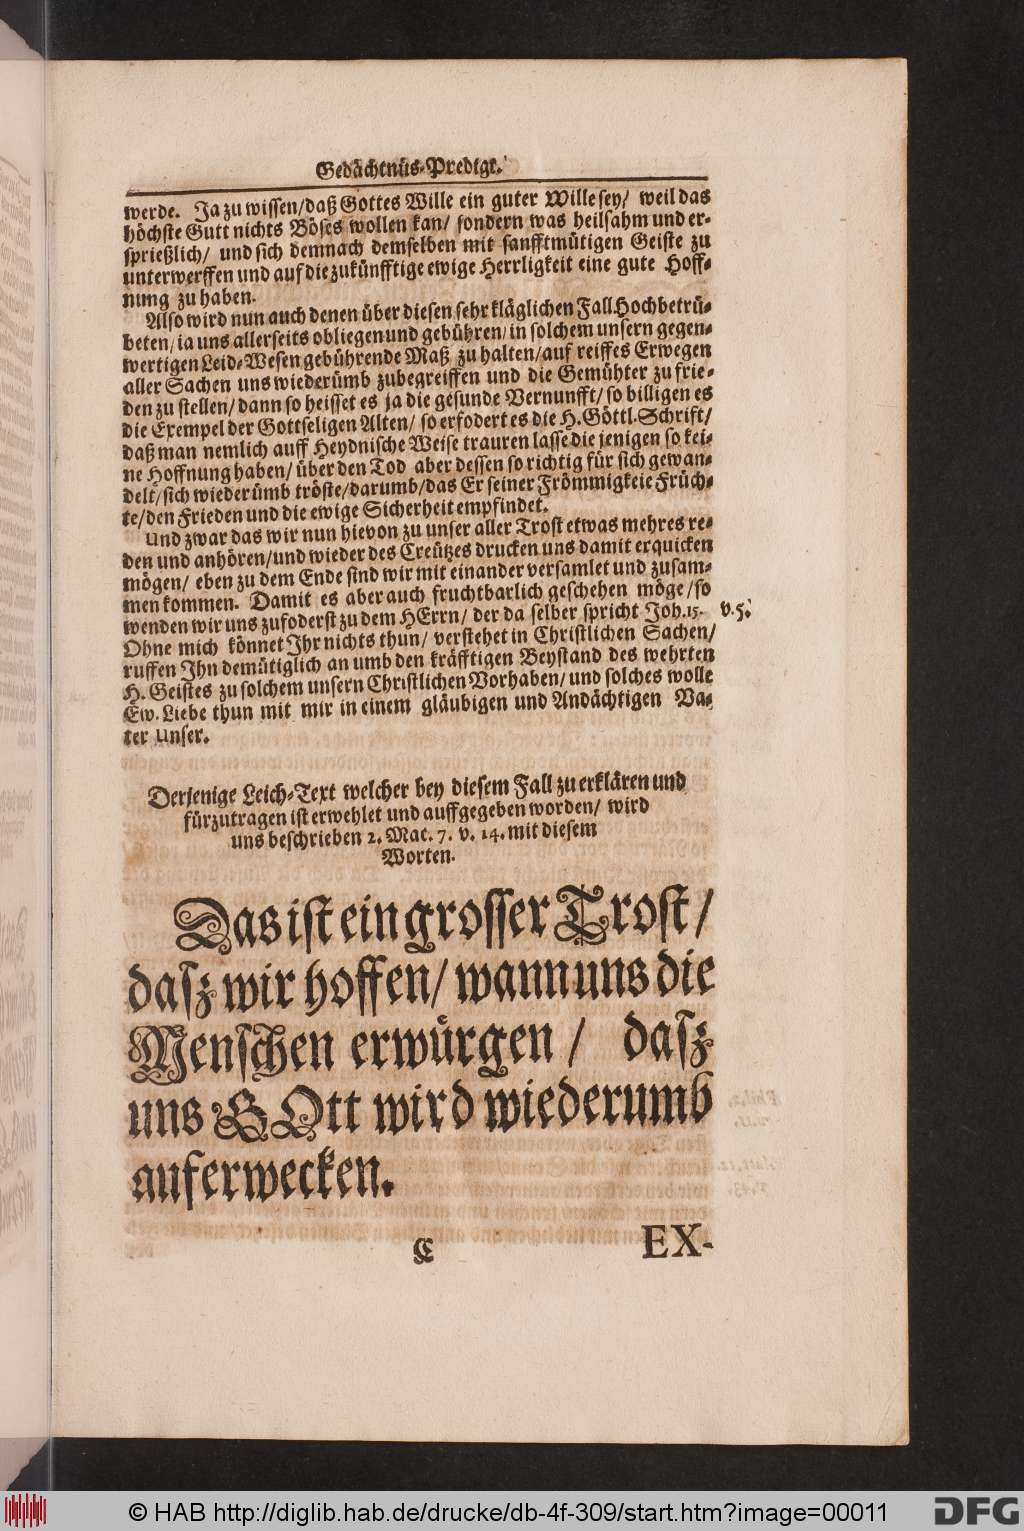 Gedächtnüs-Predigt.
werde. Ja zu wissen/ daß Gottes Wille ein guter Wille sey/ weil das
höchste Gutt nichts Böses wollen kan/ sondern was heilsahm und er-
sprießlich/ und sich demnach demselben mit sanfftmütigen Geiste zu
unterwerffen und auf die zukünfftige ewige Herrligkeit eine gute Hoff-
nung zu haben.
Also wird nun auch denen über diesen sehr kläglichen Fall Hochbetrü-
beten/ ja uns allerseits obliegen und gebühren/ in solchem unsern gegen-
wertigen Leid-Wesen gebührende Maß zu halten/ auf reiffes Erwegen
aller Sachen uns wiederümb zubegreiffen und die Gemühter zu frie-
den zu stellen/ dann so heisset es ja die gesunde Vernunfft/ so billigen es
die Exempel der Gottseligen Alten/ so erfodert es die H. Göttl. Schrift/
daß man nemlich auff Heydnische Weise trauren lasse die jenigen so kei-
ne Hoffnung haben/ über den Tod aber dessen so richtig für sich gewan-
delt/ sich wiederümb tröste/ darumb/ das Er seiner Frömmigkeie Früch-
te/ den Frieden und die ewige Sicherheit empfindet.
Und zwar das wir nun hievon zu unser aller Trost etwas mehres re-
den und anhören/ und wieder des Creützes drucken uns damit erquicken
mögen/ eben zu dem Ende sind wir mit einander versamlet und zusam-
men kommen. Damit es aber auch fruchtbarlich geschehen möge/ so
wenden wir uns zufoderst zu dem HErrn/ der da selber spricht Joh. 15. v. 5.
Ohne mich könnet Ihr nichts thun/ verstehet in Christlichen Sachen/
ruffen Ihn demütiglich an umb den kräfftigen Beystand des wehrten
H. Geistes zu solchem unsern Christlichen Vorhaben/ und solches wolle
Ew. Liebe thun mit mir in einem gläubigen und Andächtigen Va-
ter Unser.
Derjenige Leich-Text welcher bey diesem Fall zu erklären und
fürzutragen ist erwehlet und auffgegeben worden/ wird
uns beschrieben 2. Mac. 7. v. 14. mit diesem
Worten.
Das ist ein grosser Trost/
dasz wir hoffen/ wann uns die
Menschen erwürgen/ dasz
uns GOtt wird wiederumb
auferwecken.
C EX-
© HAB http://diglib.hab.de/drucke/db-4f-309/start.htm?image=00011
DFG